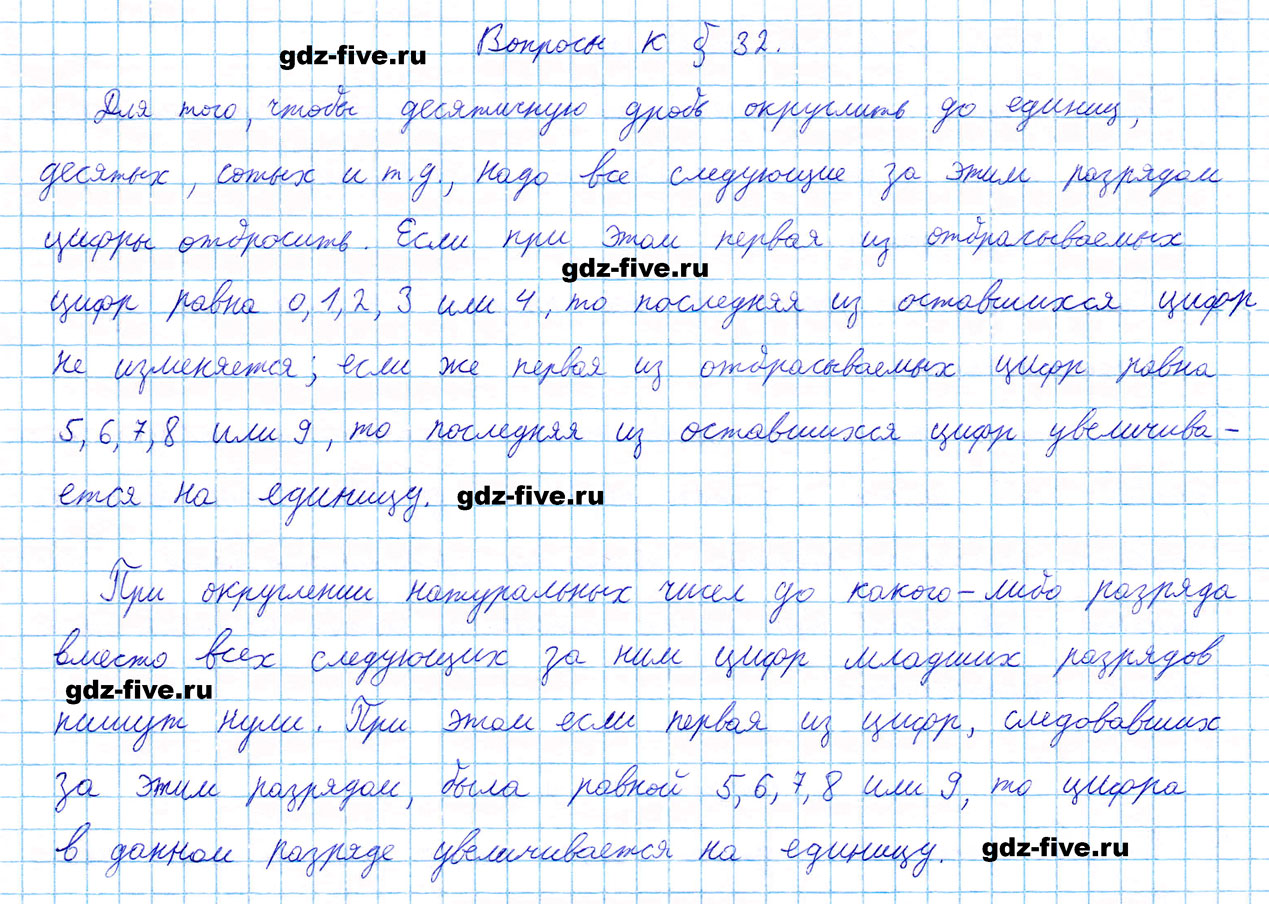 gdz-five.ru Вопросы к § 32.
Для того, чтобы десятичную дробь округлить до единиц,
десятых, сотых и т.д., надо все следующие за этим разрядом
цифры отбросить. Если при этом первая из отбрасываемых
gdz-five.ru
цифр равна 0, 1, 2, 3 или 4, то последняя из оставшихся цифр
не изменяется; если же первая из отбрасываемых цифр равна
5, 6, 7, 8 или 9, то последняя из оставшихся цифр увеличива-
ется на единицу. gdz-five.ru
При округлении натуральных чисел до какого-либо разряда
вместо всех следующих за ним цифр младших разрядов
gdz-five.ru
пишут нули. При этом если первая из цифр, следовавших
за этим разрядом, была равной 5, 6, 7, 8 или 9, то цифра
в данном разряде увеличивается на единицу. gdz-five.ru